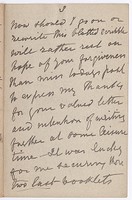 3
Now should I go on or
rewrite this blotted
will rather
hope of your forgiveness
than miss todays post
to express my thanks
for your valued letter
and intention of writing
further at some leisure
time - It was lucky
for me securing those
two last booklets